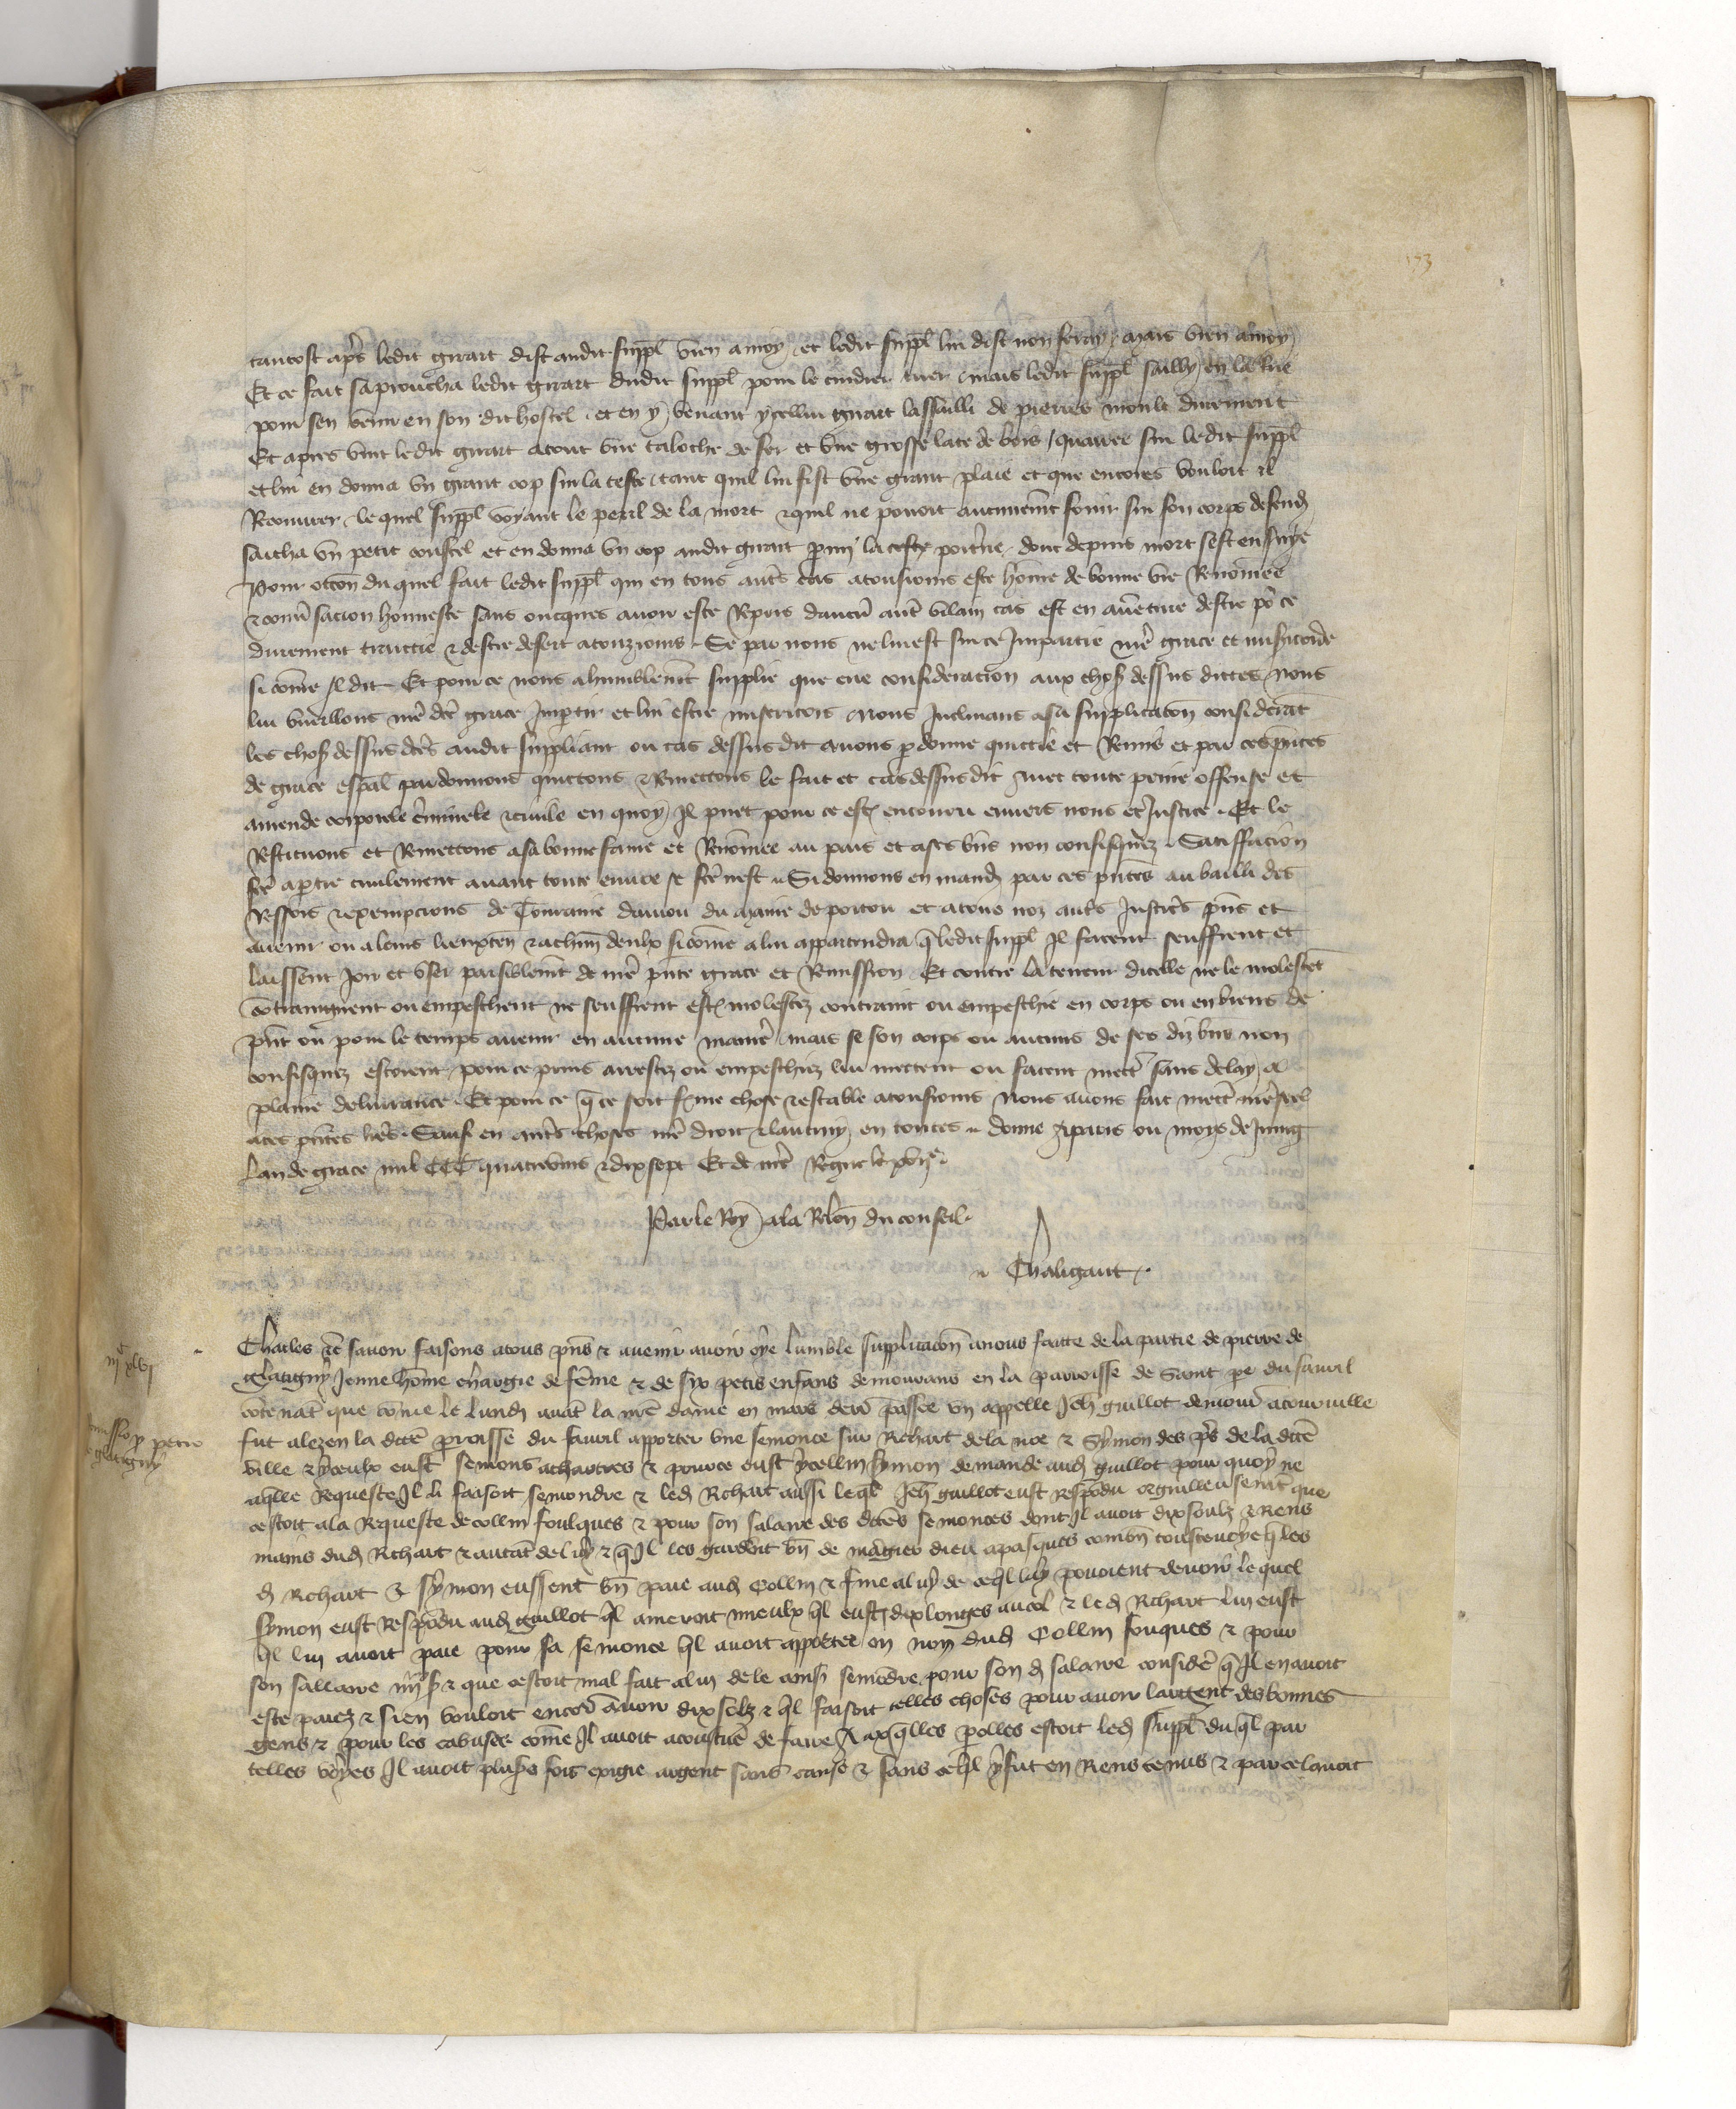 173
tantost apres ledit girart dist audit suppl vien a moy et ledit suppl lui dist non feray mais vien a moy
Et ce fait saproucha ledit girart dudit suppl pour le cuidier tuer mais ledit suppl sailly en la rue
pour sen venir en son dit hostel et en y venant ycellui girart lassailli de pierres moult durement
Et apres vint ledit girart atout une taloche de fer et une grosse late de bois quarree sur ledit suppl
et lui en donna un grant cop sur la teste tant quil lui fist une grant plaie et que encores vouloit il
Recouvrer lequel suppl voyant le peril de la mort et quil ne povoit autrement fouir sur son corps defend
saicha un petit coustel et en donna un cop audit girart parmi la poitrine dont depuis mort sest ensuye
Pour occon du quel fait ledit suppl qui en tous autres cas a tousiours este home de bonne vie Renomee
et conversacion honneste sans oncques avoir este Repris daucun autre vilain cas est en aventure destre por ce
durement traictie et destre desert a touziours Se par nous ne lui est sur ce Impartie nre grace et misericorde
si come Il dit Et pour ce nous a humblement supplie que eue consideracion aux choses dessus dictes nous
lui vueillons nre dce grace Impartir et lui estre misericors Nous Inclinans a sa supplicacon considerat
les choses dessus dces audit suppliant ou cas dessus dit avons pardonne quictie et Remis et par ces presentes
de grace espal pardonnons quictons et Remettons le fait et cas dessus dit avec toute peine offense et
amende corporele criminele et civile en quoy Il puet pour ce estre encouru envers nous et Justice Et le
Restituons et Remettons a sa bonne fame et Renomee au pais et a ses biens non confisquez Satiffacion
fce a partie civilement avant toute euvre se fce nest Si donnons en mand par ces pntes au bailli des
Ressors et exempcions de Touraine daniou du Maine de poitou et a tous noz autres Justices pns et
avenir ou a leurs lieuxten et a chun deulx si come a lui appartendra que ledit suppl Il facent seuffrent et
laissent Joir et user paisiblement de nre pnte grace et Remission Et contre la teneur dicelle ne le molestet
contraignent ou empeschent ne seuffrent estre moleste contraint ou empeschie en corps ou en biens de
pnt ou pour le temps avenir en aucune maniere mais se son corps ou aucuns de ses diz biens non
confisquez estoient pour ce prins arrestez ou empeschiez lui mettent ou facent mett sans delay a
plaine delivrance Et pour ce que ce soit ferme chose et estable a tousiours Nous avons fait mett nre seel
a ces pntes lres Sauf en autres choses nre droit et lautruy en toutes donne a paris ou moys de Juing
Lan de grace mil CCC quatrevins et dix sept Et de nre Regne le xviie
Par le Roy a la Relon du conseil
Chaligaut
Charles etc savoir faisons a tous pns et avenir avoir oye lumble supplicacon a nous faitte de la partie de pierre de
Glatigny Jeune home chargie de feme et de six petis enfans demourans en la parroisse de Saint pe du favril
contenat que come le lundi avat la nre dame en mars derr passee un appelle Jeh guillot demour a courville
fut alez en la dite parroisse du favril apporter une semonce sur Richart de la noe et Symon des pres de la dite
ville et yceulx eust semons a chartres et pour ce eust ycellui Symon demande aud guillot pour quoy ne
a quelle Requeste Il li faisoit semondre et led Richart aussi lequel Jeh guillot eust Respondu orguilleusemt que
cestoit a la Requeste de Collin foulques et pour son salaire des dictes semonces dont Il avoit dix soulz et Riens
mains dud Richart et autat de luy et quil les gardoit bn de mangier dieu a pasques combn toustevoye que les
d Richart et Symon eussent bn paie aud Collin et fine a luy de ce quil luy povoient devoir Le quel
Symon eust Respondu aud guillot quil ameroit mieulx quil eust dix longes au col et led Richart lui eust
quil lui avoit paie pour sa semonce quil avoit apportee ou nom dud Collin fouques et pour
son sallaire et que cestoit mal fait a lui de le ainsi semondre pour son d salaire considere quil en avoit
este paiez et si en vouloit encor avoir dix solz et quil faisoit telles choses pour avoir largent des bonnes
gens et pour les cabuser come Il avoit acoustume de faire A axquelles paroles estoit led suppl du quel par
telles voyes Il avoit pluss fois exigie argent sans cause et sans ce quil y fut en Riens tenus et par ce lavoit
iiic xlvi
Remissio pro petro
de glatigny